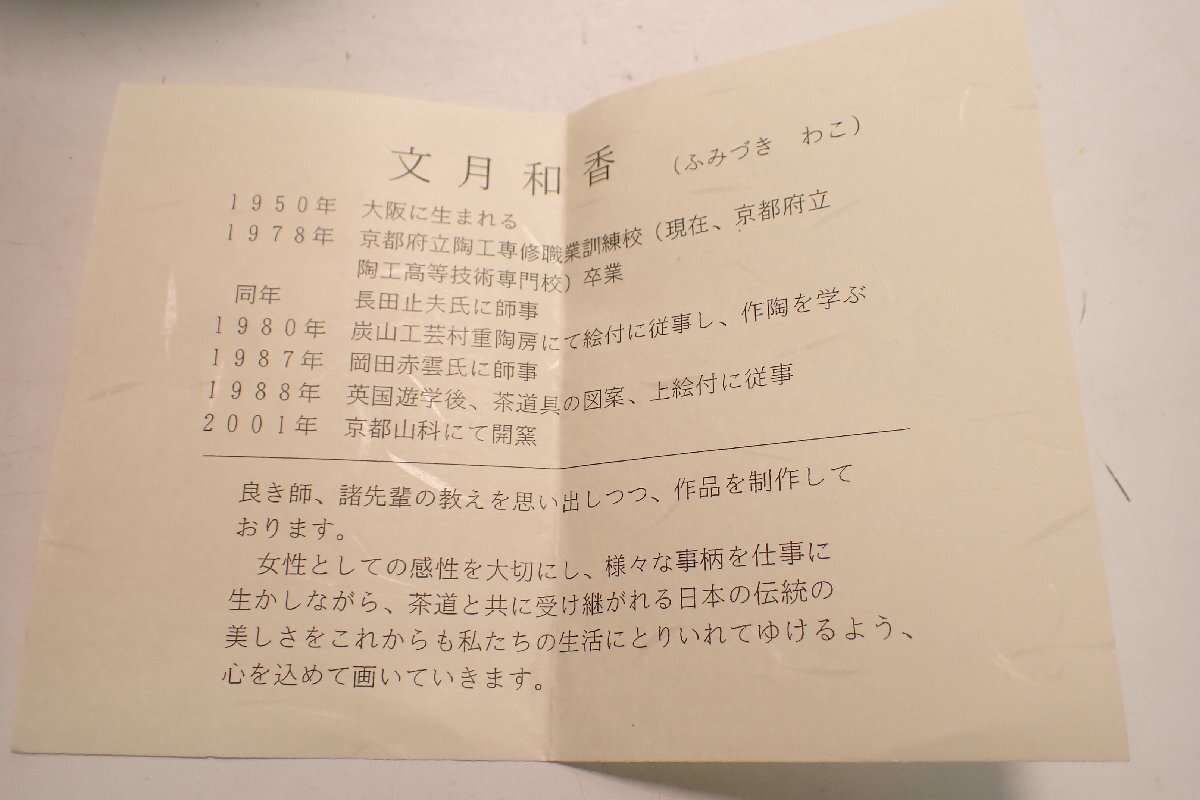 文月和香　（ふみづき　わこ）
1950年　大阪に生まれる
1978年　京都府立陶工専修職業訓練校（現在、京都府立
陶工高等技術専門校）卒業
同年　長田止夫氏に師事
1980年　炭山工芸村重陶房にて絵付に従事し、作陶を学ぶ
1987年　岡田赤雲氏に師事
1988年　英国遊学後、茶道具の図案、上絵付に従事
2001年　京都山科にて開窯
良き師、諸先輩の教えを思い出しつつ、作品を制作して
おります。
　女性としての感性を大切にし、様々な事柄を仕事に
生かしながら、茶道と共に受け継がれる日本の伝統の
美しさをこれからも私たちの生活にとりいれてゆけるよう、
心を込めて画いていきます。